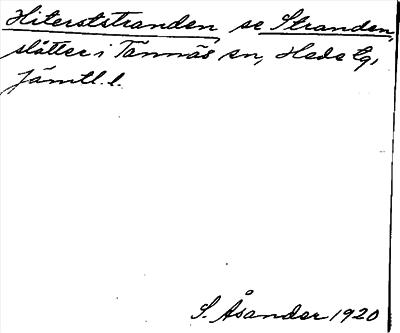 Hiterststranden se Stranden,
slåtter i Tännäs sn, Hede tg,
Jämtl. l.
S. Åsander 1920